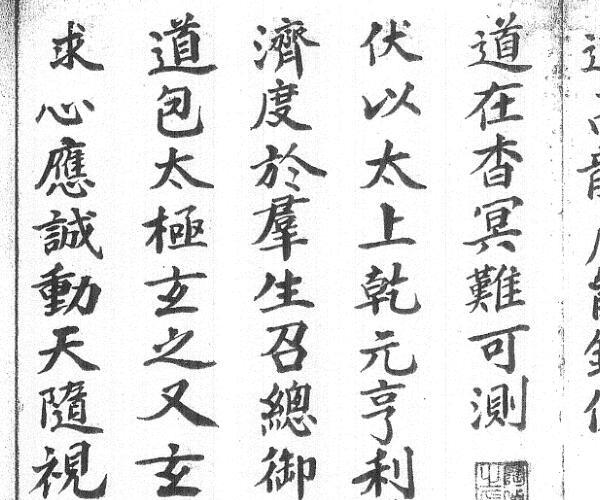 道在杳冥難可測
伏以太上乾元亨利
濟度於羣生召總御
道包太極玄之又玄
求心應誠動天隨視